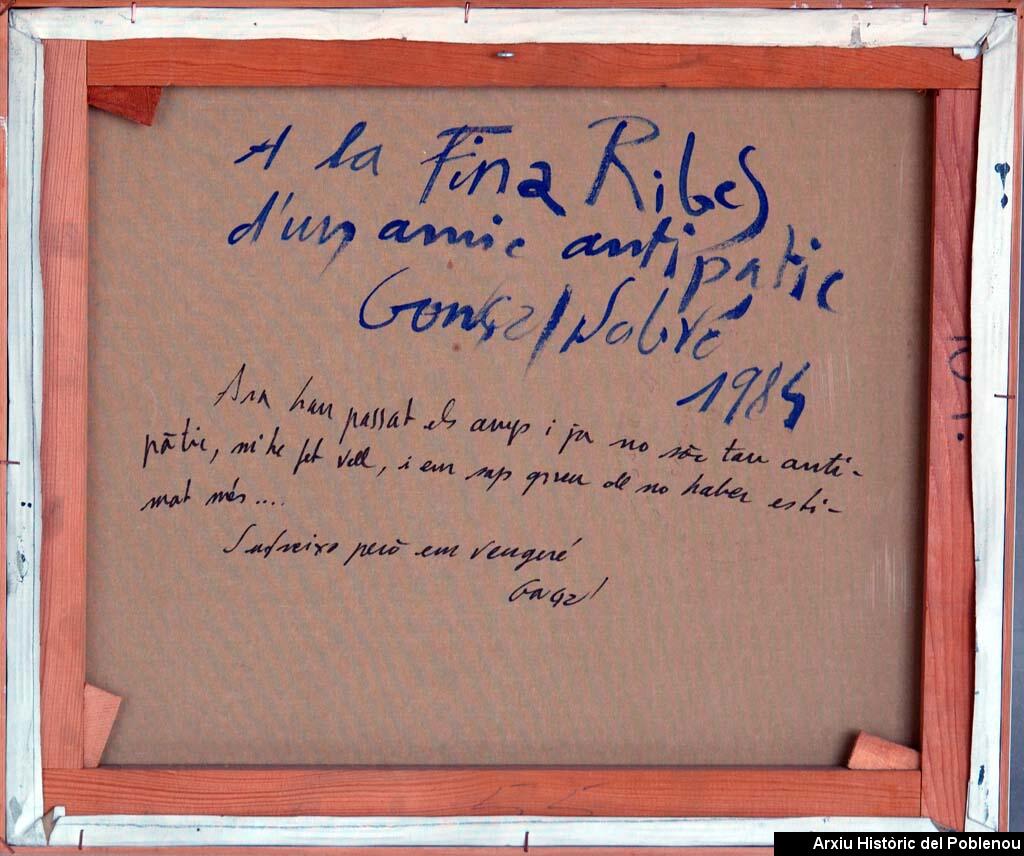 A la Fina Ribes
d'un amic antipatic
Gonçal Sobré
1984
Ara han passat els anys i ja no sóc tan anti-
pàtic, m'he fet vell, i em sap greu de no haber esti-
mat més....
però em venjaré
Gonçal
Arxiu Històric del Poblenou